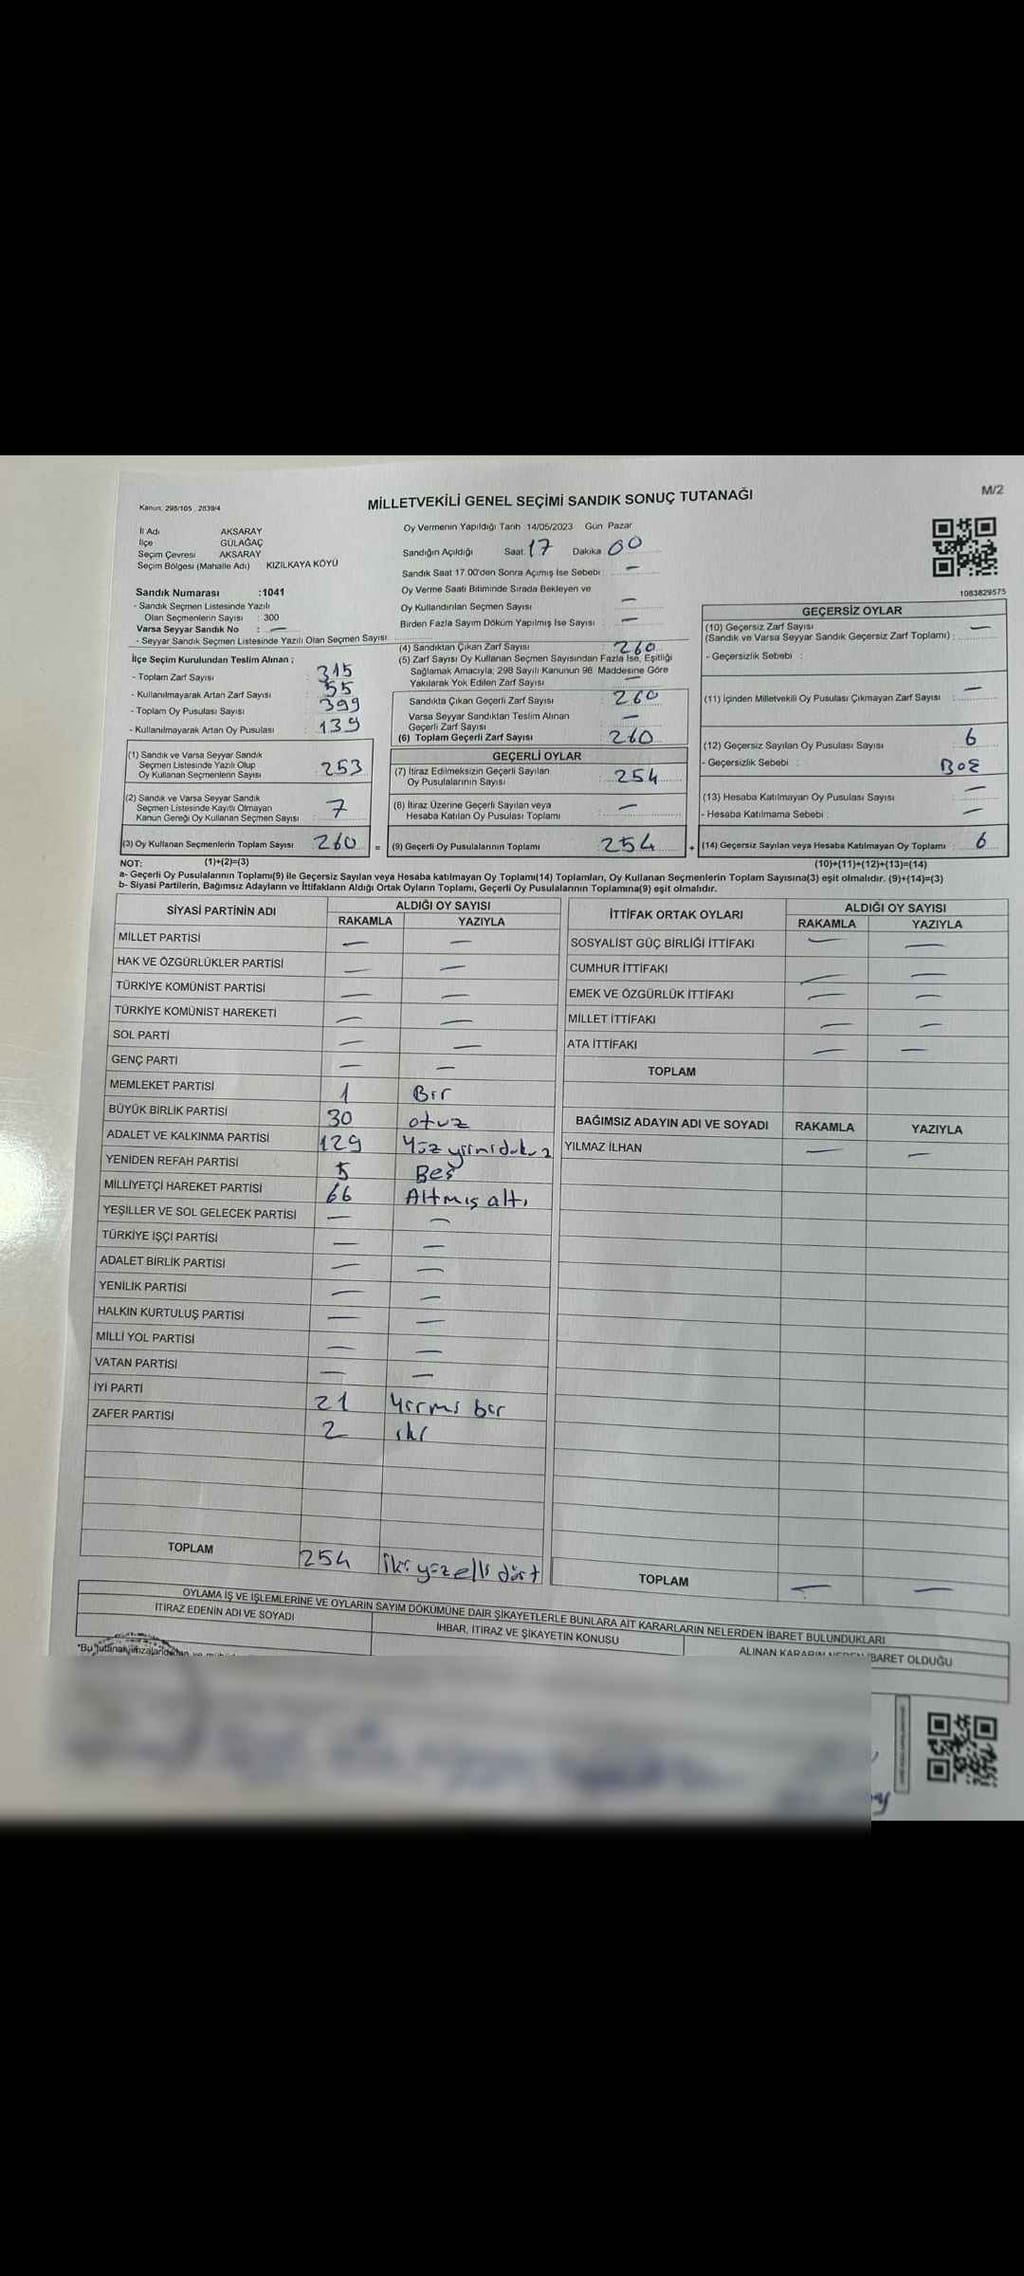 M/2
Kanun: 298/105 , 2839/4
MİLLETVEKİLİ GENEL SEÇİMİ SANDIK SONUÇ TUTANAĞI
İl Adı AKSARAY
İlçe GÜLAĞAÇ
Seçim Çevresi AKSARAY
Seçim Bölgesi (Mahalle Adı) KIZILKAYA KÖYÜ
Oy Vermenin Yapıldığı Tarih 14/05/2023 Gün Pazar
Sandığın Açıldığı Saat 17 Dakika 00
Sandık Saat 17.00'den Sonra Açılmış İse Sebebi : —
Oy Verme Saati Bitiminde Sırada Bekleyen ve
Oy Kullandırılan Seçmen Sayısı —
Birden Fazla Sayım Döküm Yapılmış İse Sayısı : —
1083829575
Sandık Numarası :1041
- Sandık Seçmen Listesinde Yazılı
Olan Seçmenlerin Sayısı : 300
Varsa Seyyar Sandık No : —
- Seyyar Sandık Seçmen Listesinde Yazılı Olan Seçmen Sayısı
İlçe Seçim Kurulundan Teslim Alınan ;
- Toplam Zarf Sayısı 315
- Kullanılmayarak Artan Zarf Sayısı 55
- Toplam Oy Pusulası Sayısı 399
- Kullanılmayarak Artan Oy Pusulası 139
(1) Sandık ve Varsa Seyyar Sandık
Seçmen Listesinde Yazılı Olup
Oy Kullanan Seçmenlerin Sayısı 253
(2) Sandık ve Varsa Seyyar Sandık
Seçmen Listesinde Kayıtlı Olmayan
Kanun Gereği Oy Kullanan Seçmen Sayısı 7
(3) Oy Kullanan Seçmenlerin Toplam Sayısı 260 =
(4) Sandıktan Çıkan Zarf Sayısı : 260
(5) Zarf Sayısı Oy Kullanan Seçmen Sayısından Fazla İse, Eşitliği
Sağlamak Amacıyla; 298 Sayılı Kanunun 98. Maddesine Göre
Yakılarak Yok Edilen Zarf Sayısı —
Sandıkta Çıkan Geçerli Zarf Sayısı : 260
Varsa Seyyar Sandıktan Teslim Alınan
Geçerli Zarf Sayısı —
(6) Toplam Geçerli Zarf Sayısı : 260
GEÇERLİ OYLAR
(7) İtiraz Edilmeksizin Geçerli Sayılan
Oy Pusulalarının Sayısı : 254
(8) İtiraz Üzerine Geçerli Sayılan veya
Hesaba Katılan Oy Pusulası Toplamı : —
(9) Geçerli Oy Pusulalarının Toplamı 254 +
GEÇERSİZ OYLAR
(10) Geçersiz Zarf Sayısı
(Sandık ve Varsa Seyyar Sandık Geçersiz Zarf Toplamı) : —
- Geçersizlik Sebebi :
(11) İçinden Milletvekili Oy Pusulası Çıkmayan Zarf Sayısı : —
(12) Geçersiz Sayılan Oy Pusulası Sayısı 6
- Geçersizlik Sebebi :
(13) Hesaba Katılmayan Oy Pusulası Sayısı —
- Hesaba Katılmama Sebebi : —
(14) Geçersiz Sayılan veya Hesaba Katılmayan Oy Toplamı : 6
NOT: (1)+(2)=(3)
(10)+(11)+(12)+(13)=(14)
a- Geçerli Oy Pusulalarının Toplamı(9) ile Geçersiz Sayılan veya Hesaba katılmayan Oy Toplamı(14) Toplamları, Oy Kullanan Seçmenlerin Toplam Sayısına(3) eşit olmalıdır. (9)+(14)=(3)
b- Siyasi Partilerin, Bağımsız Adayların ve İttifakların Aldığı Ortak Oyların Toplamı, Geçerli Oy Pusulalarının Toplamına(9) eşit olmalıdır.
SİYASİ PARTİNİN ADI ALDIĞI OY SAYISI
RAKAMLA YAZIYLA
MİLLET PARTİSİ — —
HAK VE ÖZGÜRLÜKLER PARTİSİ — —
TÜRKİYE KOMÜNİST PARTİSİ — —
TÜRKİYE KOMÜNİST HAREKETİ — —
SOL PARTİ — —
GENÇ PARTİ — —
MEMLEKET PARTİSİ 1 Bir
BÜYÜK BİRLİK PARTİSİ 30 otuz
ADALET VE KALKINMA PARTİSİ 129 Yüz yirmi dokuz
YENİDEN REFAH PARTİSİ 5 Beş
MİLLİYETÇİ HAREKET PARTİSİ 66 Altmış altı
YEŞİLLER VE SOL GELECEK PARTİSİ — —
TÜRKİYE İŞÇİ PARTİSİ — —
ADALET BİRLİK PARTİSİ — —
YENİLİK PARTİSİ — —
HALKIN KURTULUŞ PARTİSİ — —
MİLLİ YOL PARTİSİ — —
VATAN PARTİSİ — —
İYİ PARTİ 21 Yirmi bir
ZAFER PARTİSİ 2 iki
TOPLAM 254 iki yüz elli dört
İTTİFAK ORTAK OYLARI ALDIĞI OY SAYISI
RAKAMLA YAZIYLA
SOSYALİST GÜÇ BİRLİĞİ İTTİFAKI — —
CUMHUR İTTİFAKI — —
EMEK VE ÖZGÜRLÜK İTTİFAKI — —
MİLLET İTTİFAKI — —
ATA İTTİFAKI — —
TOPLAM
BAĞIMSIZ ADAYIN ADI VE SOYADI RAKAMLA YAZIYLA
YILMAZ İLHAN — —
TOPLAM — —
OYLAMA İŞ VE İŞLEMLERİNE VE OYLARIN SAYIM DÖKÜMÜNE DAİR ŞİKAYETLERLE BUNLARA AİT KARARLARIN NELERDEN İBARET BULUNDUKLARI
İTİRAZ EDENİN ADI VE SOYADI İHBAR, İTİRAZ VE ŞİKAYETİN KONUSU ALINAN KARARIN NEDEN İBARET OLDUĞU